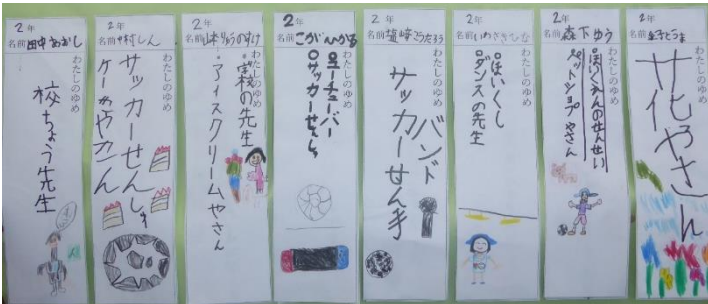 2年
名前 田中あおし
わたしのゆめ
校ちょう先生
2年
名前 中村しん
わたしのゆめ
サッカーせんしゅ
ケーキやさん
2年
名前 山本りゅうのすけ
わたしのゆめ
・学校の先生
・アイスクリームやさん
2年
名前 こがひかる
わたしのゆめ
○ユーチューバー
○サッカーせんしゅ
2年
名前 こうたろう
わたしのゆめ
バンド
サッカーせん手
2年
名前 いわさきひな
わたしのゆめ
○ほいくし
○ダンスの先生
2年
名前 森下ゆう
わたしのゆめ
○ほいくえんのせんせい
ペットショップやさん
2年
名前 金子とうま
わたしのゆめ
花やさん